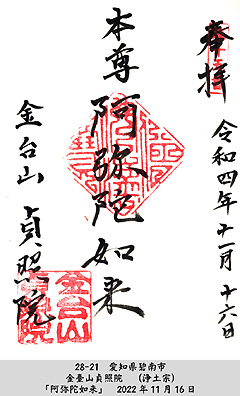 奉拝
令和四年十一月十六日
本尊 阿弥陀如来
金台山 貞照院
28-21 愛知県碧南市
金臺山貞照院 (浄土宗)
「阿弥陀如来」 2022年11月16日